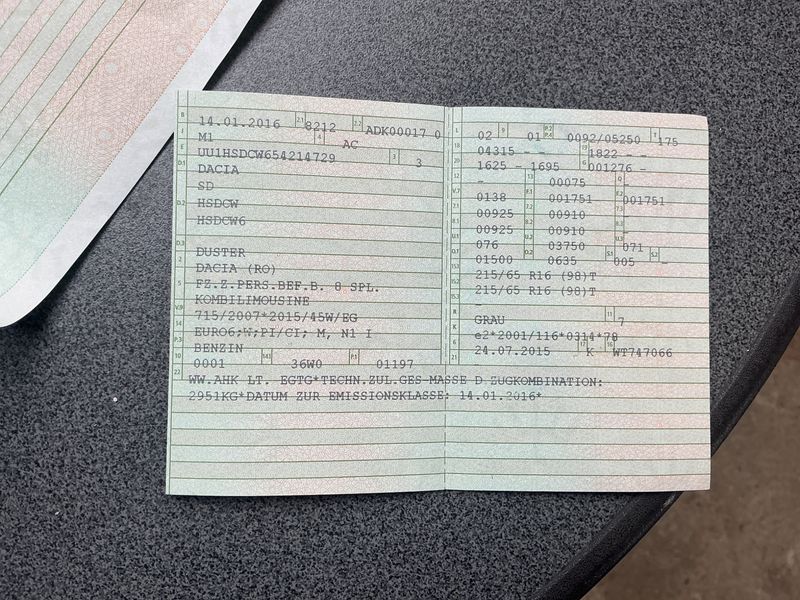 B 14.01.2016 2.1 8212 2.2 ADK00017 0
J M1 4 AC
E UU1HSDCW654214729 3 3
D.1 DACIA
SD
D.2 HSDCW
HSDCW6
D.3 DUSTER
2 DACIA (RO)
5 FZ.Z.PERS.BEF.B. 8 SPL.
KOMBILIMOUSINE
V.9 715/2007*2015/45W/EG
14 EURO6;W;PI/CI; M, N1 I
P.3 BENZIN
10 0001 14.1 36W0 P.1 01197
L 02 9 01 P.2 P.4 0092/05250 T 175
18 04315 - - 19 1822 - -
20 1625 - 1695 G 001276 -
12 - 13 00075 Q -
V.7 0138 F.1 001751 F.2 001751
7.1 00925 7.2 00910 7.3
8.1 00925 8.2 00910 8.3
U.1 076 U.2 03750 U.3 071
O.1 01500 O.2 0635 S.1 005 S.2 -
15.1 215/65 R16 (98)T
15.2 215/65 R16 (98)T
15.3 -
R GRAU 11 7
K e2*2001/116*0314*78
6 24.07.2015 17 K 16 WT747066
21
22 WW.AHK LT. EGTG*TECHN.ZUL.GES-MASSE D.ZUGKOMBINATION:
2951KG*DATUM ZUR EMISSIONSKLASSE: 14.01.2016*